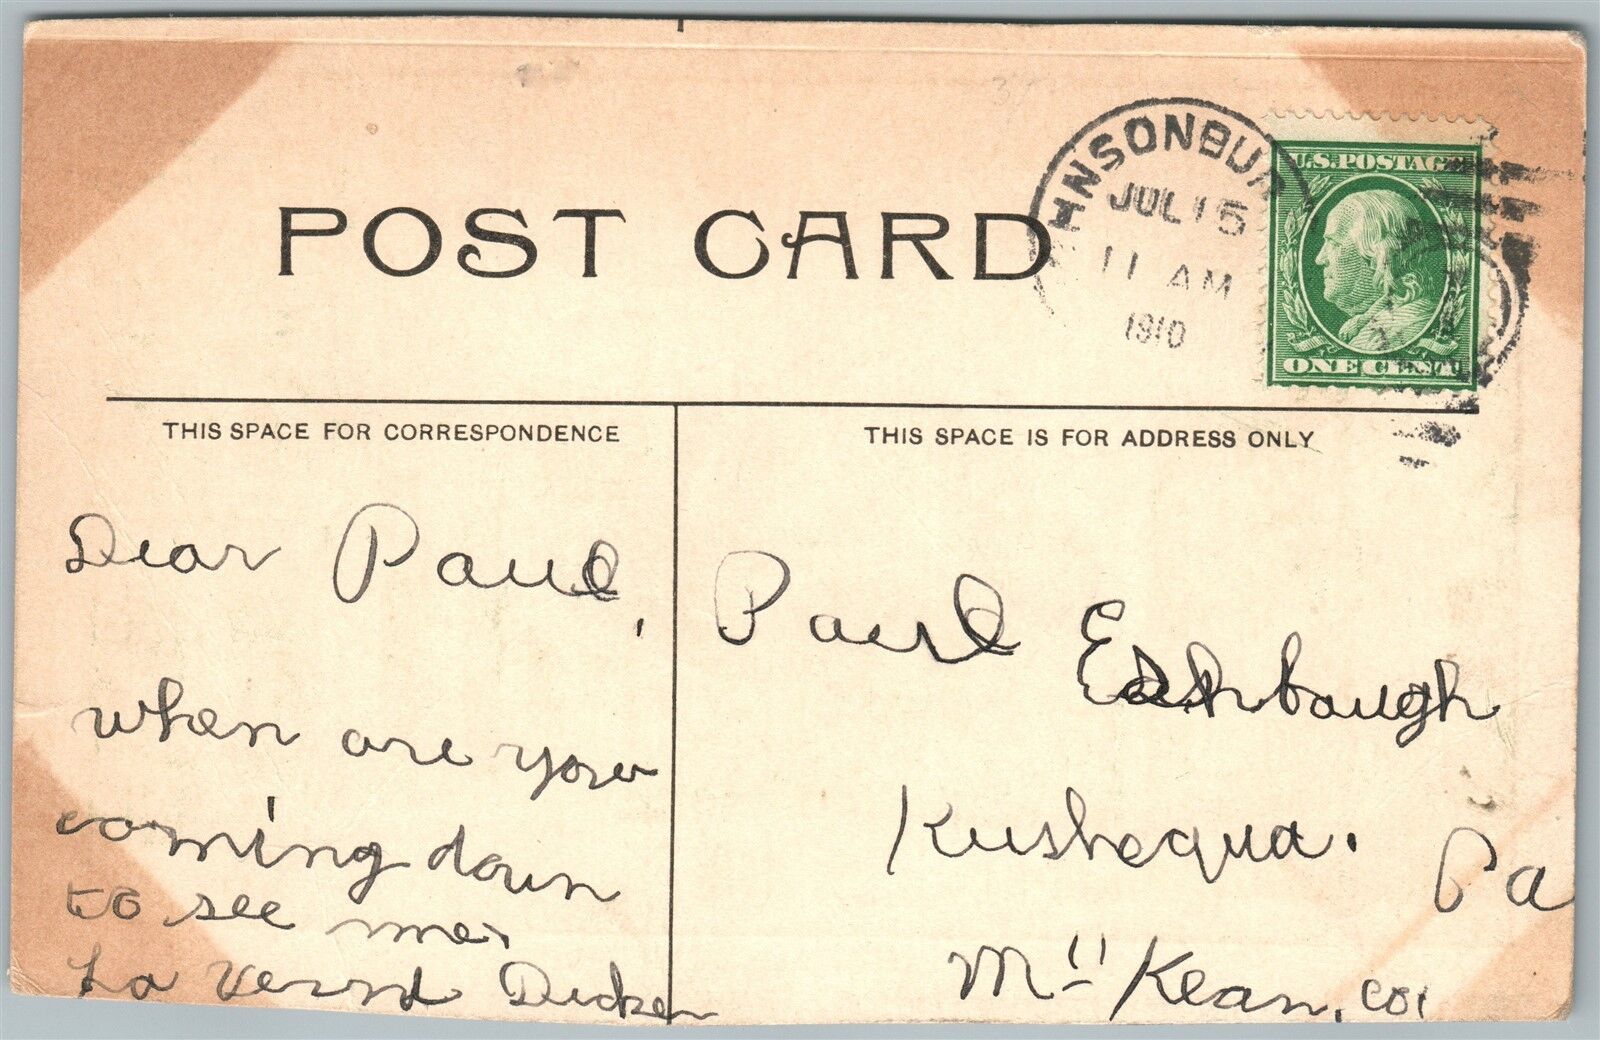 POST CARD
HNSONBU
JUL 15
11 AM
1910
U.S. POSTAGE
ONE CENT
THIS SPACE FOR CORRESPONDENCE
THIS SPACE IS FOR ADDRESS ONLY
Dear Paul,
when are you
coming down
to see me.
La Vernd Dicken
Paul Eshbaugh
Kushequa. Pa
Mc Kean, co.